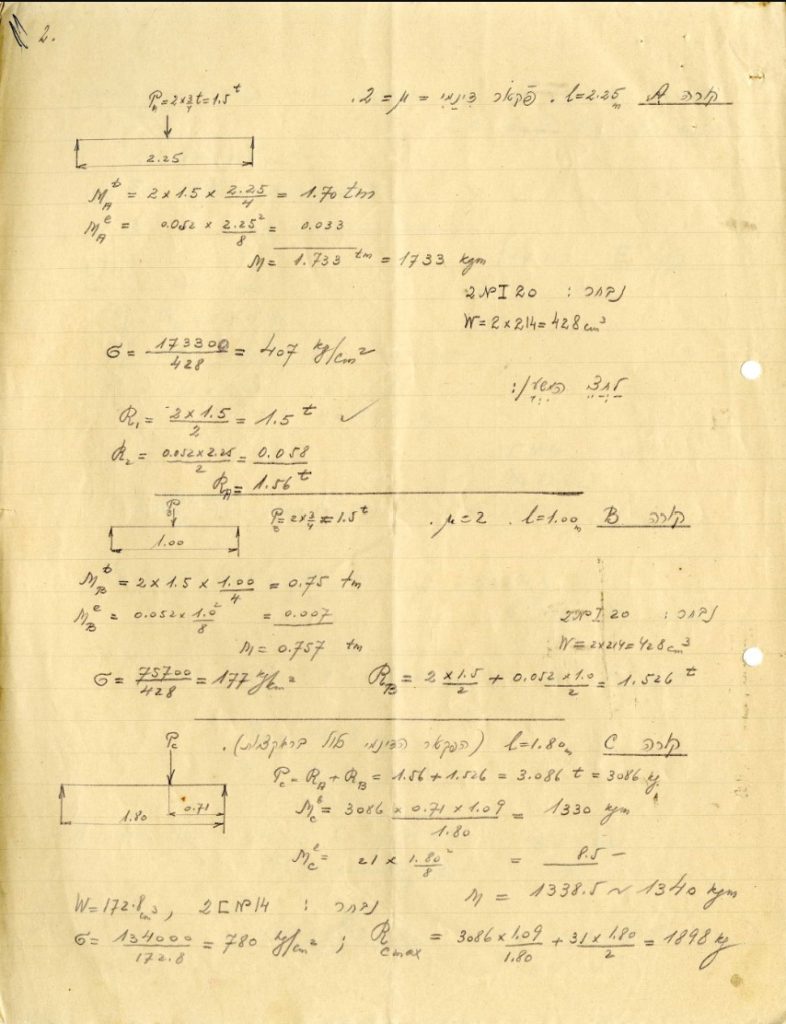 2.
קורה A l=2.25m . פקטור דינמי = μ = 2.
P_A = 2×3/4 t = 1.5 t
2.25
M_A^b = 2×1.5× 2.25/4 = 1.70 tm
M_A^e = 0.052 × 2.25²/8 = 0.033
M = 1.733 tm = 1733 kgm
נבחר : 2 № I 20
W = 2×214 = 428 cm³
σ = 173300/428 = 407 kg/cm²
לחץ המשען:
R₁ = 2×1.5/2 = 1.5 t ✓
R₂ = 0.052×2.25/2 = 0.058
R_A = 1.56 t
קורה B l=1.00m . μ=2 .
P_B
P_B = 2×3/4 = 1.5 t
1.00
M_B^b = 2×1.5× 1.00/4 = 0.75 tm
M_B^e = 0.052× 1.0²/8 = 0.007
נבחר : 2 № I 20
M = 0.757 tm
W = 2×214 = 428 cm³
σ = 75700/428 = 177 kg/cm²
R_B = 2×1.5/2 + 0.052×1.0/2 = 1.526 t
קורה C l=1.80m (הפקטור הדינמי כלול בראקציות).
P_c
P_c = R_A + R_B = 1.56 + 1.526 = 3.086 t = 3086 kg
0.71
1.80
M_c^b = 3086 × 0.71 × 1.09/1.80 = 1330 kgm
M_c^e = 21 × 1.80²/8 = 8.5 –
M = 1338.5 ~ 1340 kgm
נבחר : 2 [ № 14 , W = 172.8 cm³
σ = 134000/172.8 = 780 kg/cm² ; R_c max = 3086× 1.09/1.80 + 31×1.80/2 = 1898 kg